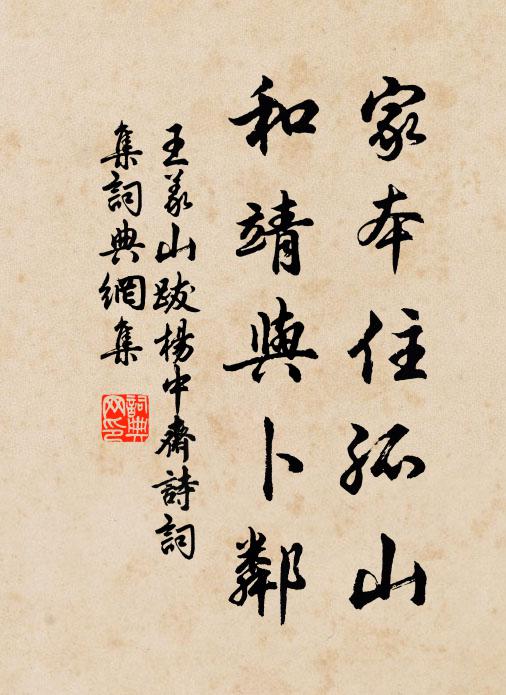 家本住孤山
和靖與卜鄰
王義山跋楊中齋詩詞
集詞典網集
詞典网印